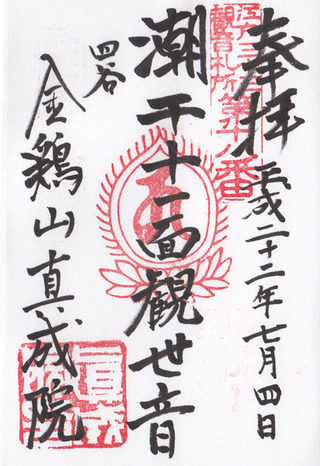 奉拝 平成二十二年七月四日
江戸三十三
観音札所
第十八番
潮干十一面観世音
四谷
金鶏山真成院